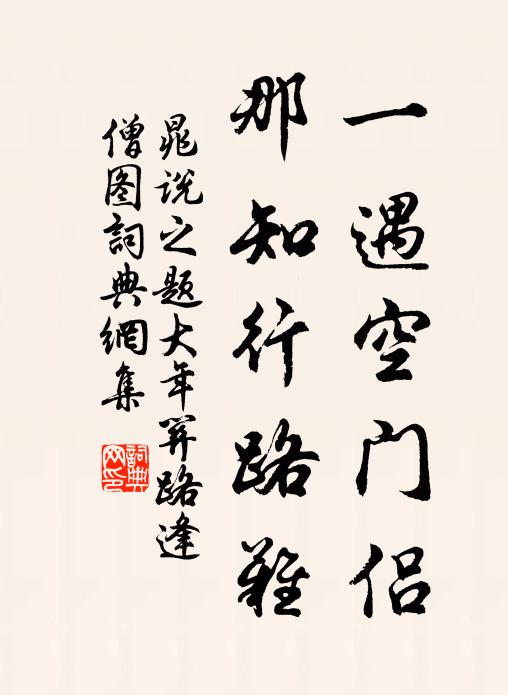 一遇空门侣
那知行路难
晁说之题大年笄路逢
僧图词典網集
詞典网印